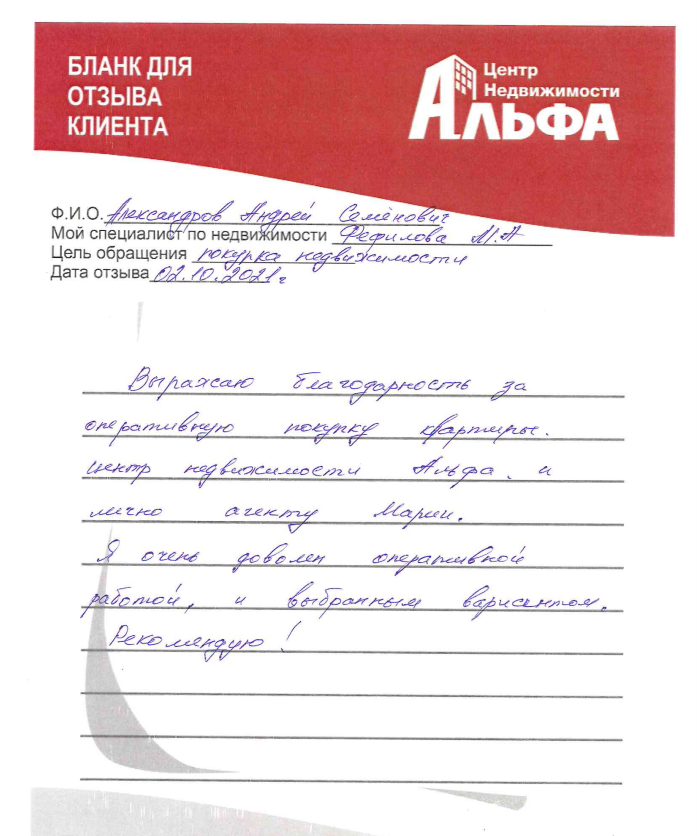 БЛАНК ДЛЯ
ОТЗЫВА
КЛИЕНТА
Центр
Недвижимости
АЛЬФА
Ф.И.О. Александров Андрей Семёнович
Мой специалист по недвижимости Фефилова М.А
Цель обращения покупка недвижимости
Дата отзыва 02.10.2021г
Выражаю благодарность за
оперативную покупку квартиры.
центр недвижимости Альфа. и
лично агенту Марии.
Я очень доволен оперативной
работой, и выбранным вариантом.
Рекомендую!